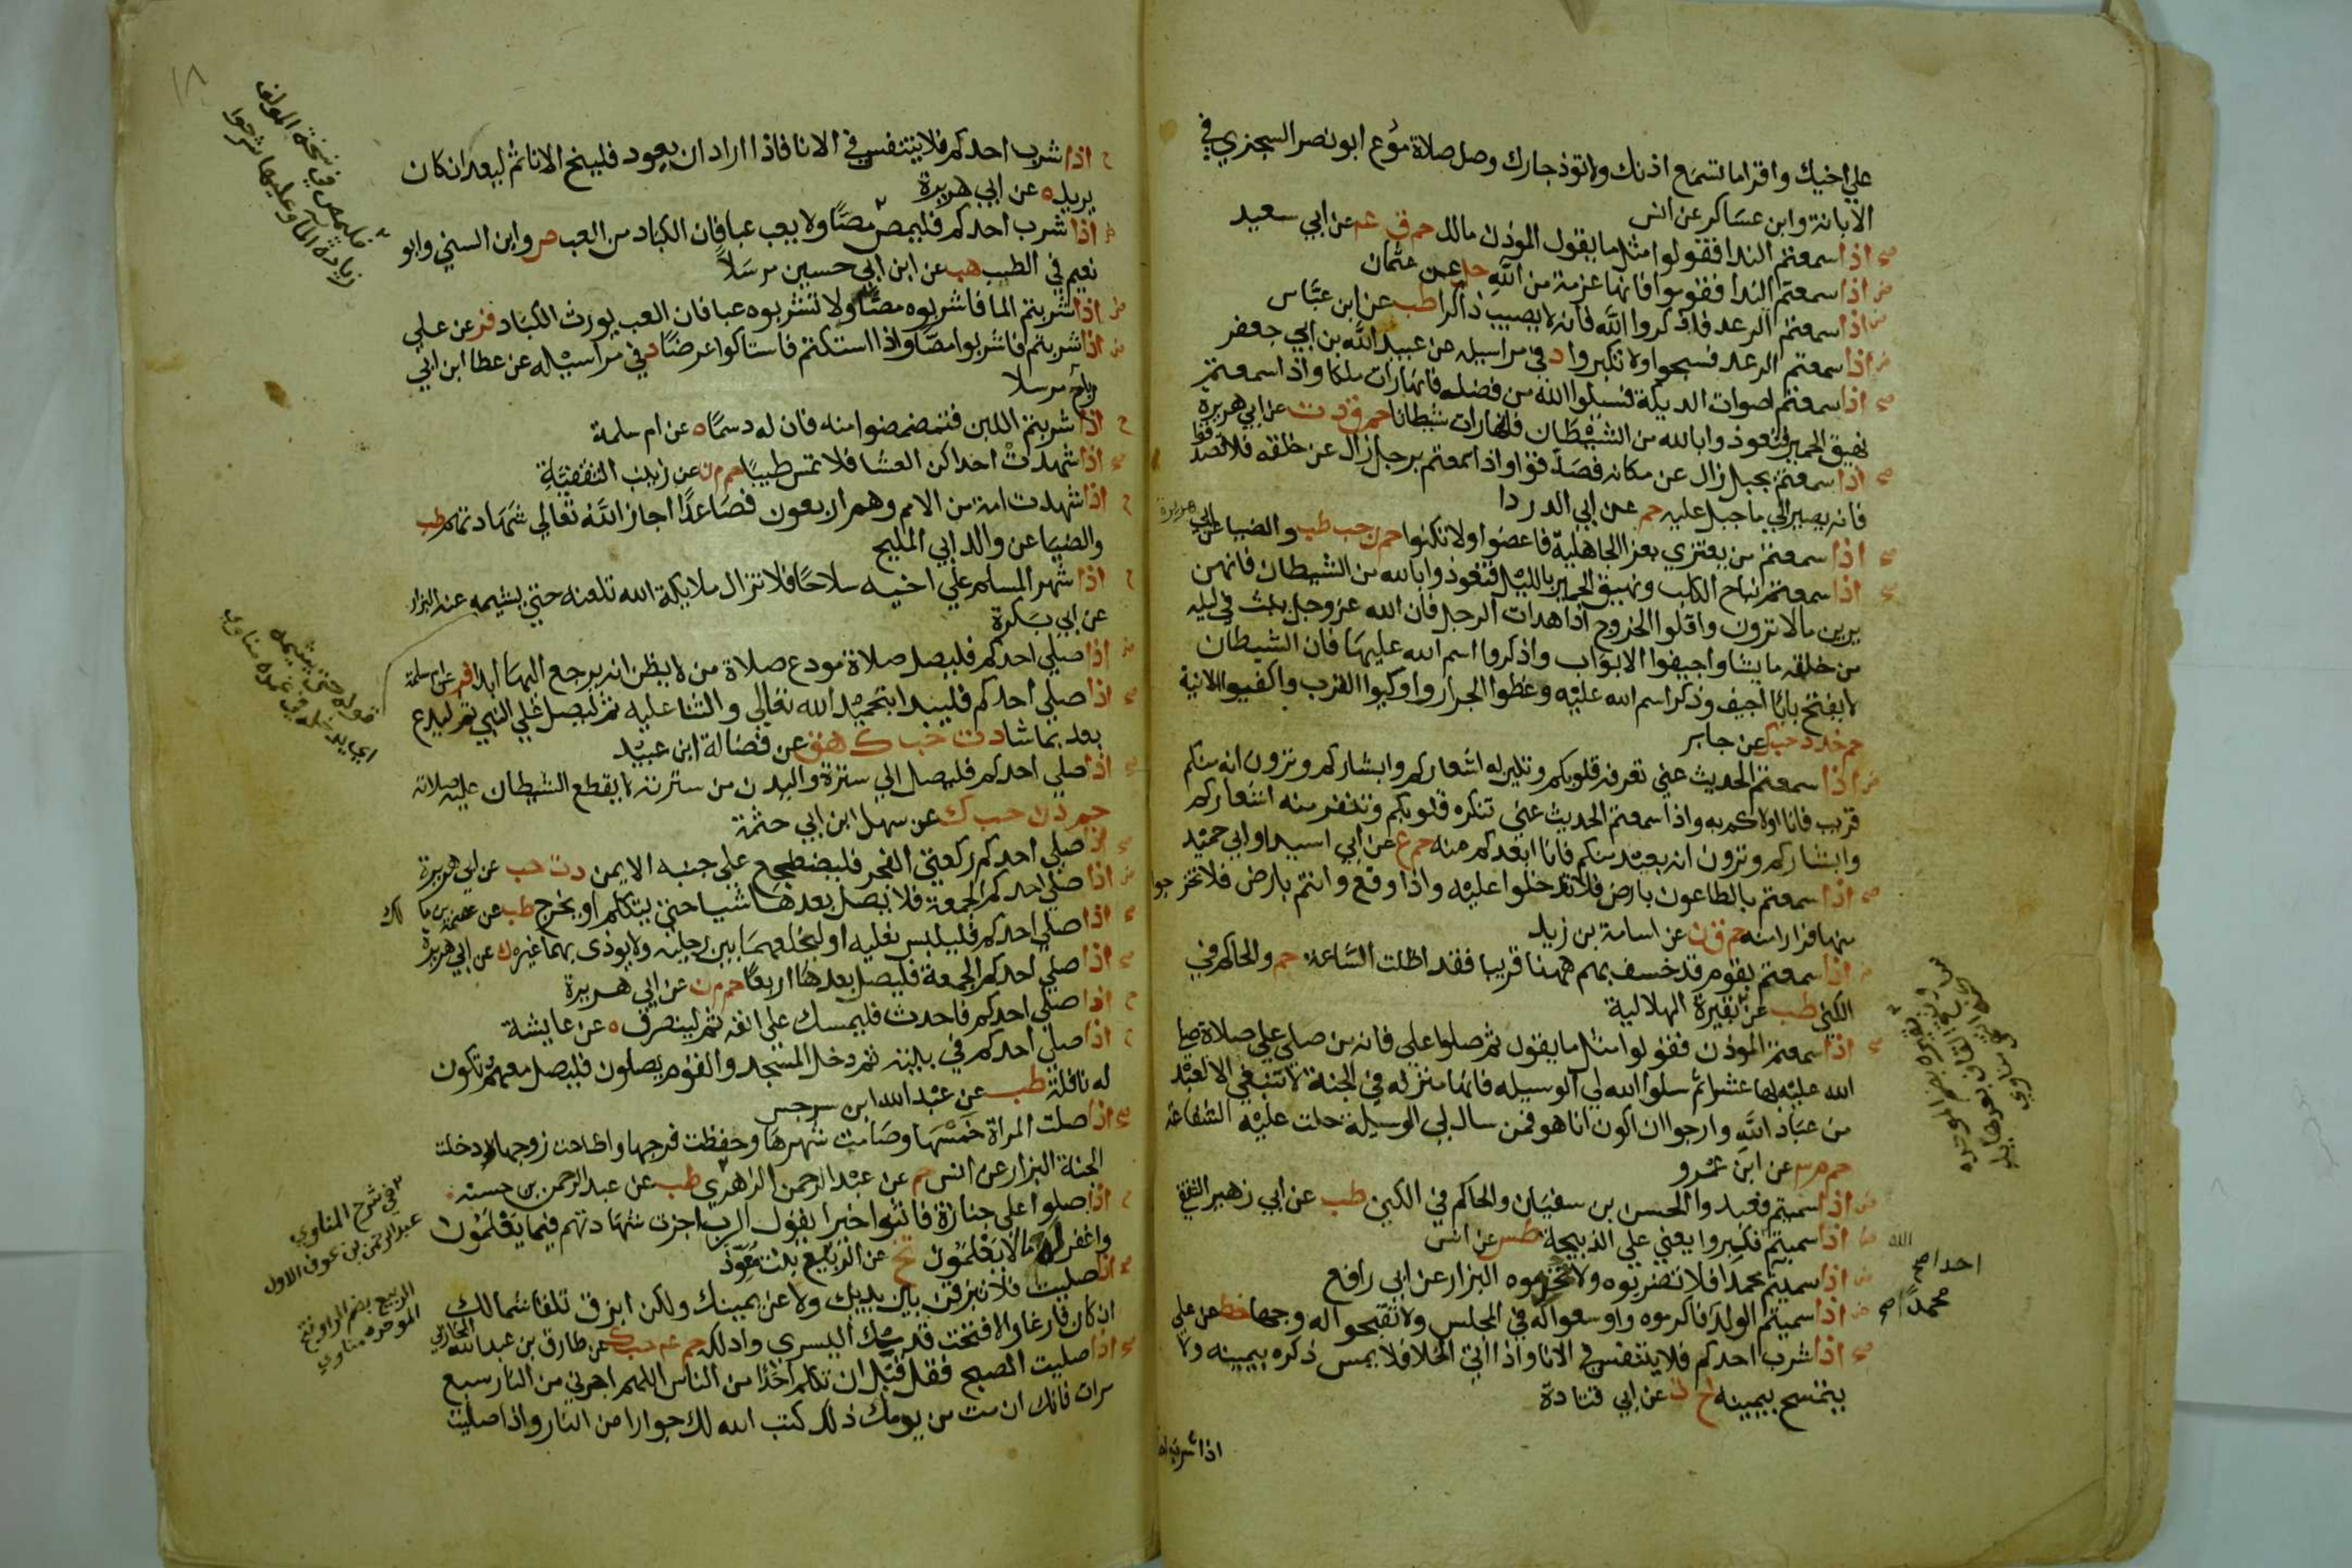 على اخيك واقرا ما تسمع اذنك ولا توذ جارك وصل صلاة مودع ابو نصر السجزي في
الابانة وابن عساكر عن انس
صح اذا سمعتم الندا فقولوا مثل ما يقول الموذن مالك حم ق عم عن ابي سعيد
ض اذا سمعتم الندا فقوموا فانها عزمة من الله حل عن عثمان
ض اذا سمعتم الرعد فاذكروا الله فانه لا يصيب ذاكرا طب عن ابن عباس
ض اذا سمعتم الرعد فسبحوا ولا تكبروا د في مراسيله عن عبيد الله بن ابي جعفر
صح اذا سمعتم اصوات الديكة فسلوا الله من فضله فانها رات ملكا واذا سمعتم
نهيق الحمير فتعوذوا بالله من الشيطان فانها رات شيطانا حم ق د ت عن ابي هريرة
صح اذا سمعتم بجبل زال عن مكانه فصدقوا واذا سمعتم برجل زال عن خلقه فلا تصدقوا
فانه يصير الي ما جبل عليه حم عن ابي الدردا
صح اذا سمعتم من يعتزي بعز الجاهلية فاعضوا ولا تكنوا حم ن حب طب والضيا عن ابي
صح اذا سمعتم نباح الكلب ونهيق الحمير بالليل فتعوذوا بالله من الشيطان فانهن
يرين ما لا ترون واقلوا الخروج اذا هدات الرجل فان الله عز وجل يبث في ليله
من خلقه ما يشا واجيفوا الابواب واذكروا اسم الله عليها فان الشيطان
لا يفتح بابا اجيف وذكر اسم الله عليه وغطوا الجرار واوكوا القرب واكفيوا الانية
حم خد د حب ك عن جابر
ض اذا سمعتم الحديث عني تعرفه قلوبكم وتلين له اشعاركم وابشاركم وترون انه منكم
قريب فانا اولاكم به واذا سمعتم الحديث عني تنكره قلوبكم وتنفر منه اشعاركم
وابشاركم وترون انه بعيد منكم فانا ابعدكم منه حم ع عن ابي اسيد او ابي حميد
صح اذا سمعتم بالطاعون بارض فلا تدخلوا عليه واذا وقع وانتم بارض فلا تخرجوا
منها فرارا منه حم ق ن عن اسامة بن زيد
اذا سمعتم بقوم قد خسف بهم ههنا قريبا فقد اظلت الساعة حم والحاكم في
الكنى طب عن بقيرة الهلالية
صح اذا سمعتم الموذن فقولوا مثل ما يقول ثم صلوا علي فانه من صلي علي صلاة صلي
الله عليه بها عشرا ثم سلوا الله لي الوسيله فانها منزله في الجنة لا تنبغي الا لعبد
من عباد الله وارجوا ان اكون انا هو فمن سال لي الوسيلة حلت عليه الشفاعة
حم م عن ابن عمرو
ض اذا سميتم فعبدوا الحسن بن سفيان والحاكم في الكنى طب عن ابي زهير الثقفي
اذا سميتم فكبروا يعني على الذبيحة طس عن انس
ض اذا سميتم محمدا فلا تضربوه ولا تحرموه البزار عن ابي رافع
ض اذا سميتم الولد فاكرموه واوسعوا له في المجلس ولا تقبحوا له وجها خط عن علي
صح اذا شرب احدكم فلا يتنفس في الانا واذا اتي الخلا فلا يمس ذكره بيمينه ولا
يتمسح بيمينه خ ت عن ابي قتادة
هريرة
الله
احد اصح
محمداً اصح
١٨
ح اذا شرب احدكم فلا يتنفس في الانا فاذا اراد ان يعود فلينح الانا ثم ليعد ان كان
يريد ه عن ابي هريرة
اذا شرب احدكم فليمص مصا ولا يعب عبا فان الكباد من العب ص وابن السني وابو
نعيم في الطب هب عن ابن ابي حسين مرسلا
ض اذا شربتم الما فاشربوه مصا ولا تشربوه عبا فان العب يورث الكباد فر عن علي
ض اذا شربتم فاشربوا مصا واذا استكتم فاستاكوا عرضا د في مراسيله عن عطا ابن ابي
رباح مرسلا
ح اذا شربتم اللبن فتمضمضوا منه فان له دسما ه عن ام سلمة
صح اذا شهدت احداكن العشا فلا تمس طيبا حم م ن عن زينب الثقفية
ح اذا شهدت امة من الامم وهم اربعون فصاعدا اجاز الله تعالي شهادتهم طب
والضيا عن والد ابي المليح
ح اذا شهر المسلم علي اخيه سلاحا فلا تزال ملايكة الله تلعنه حتي يشيمه عنه البزار
عن ابي بكرة
ض اذا صلي احدكم فليصل صلاة مودع صلاة من لا يظن انه يرجع اليها ابدا فر عن ام سلمة
صح اذا صلي احدكم فليبدا بتحميد الله تعالي والثنا عليه ثم ليصل على النبي ثم ليدع
بعد بما شا د ت حب ك هق عن فضالة ابن عبيد
صح اذا صلي احدكم فليصل الي سترة وليدن من سترته لا يقطع الشيطان عليه صلاته
حم د ن حب ك عن سهل ابن ابي حثمة
صح اذا صلي احدكم ركعتي الفجر فليضطجع على جنبه الايمن د ت حب عن ابي هريرة
ض اذا صلي احدكم الجمعة فلا يصل بعدها شيا حتي يتكلم او يخرج طب عن عصمة بن مالك
صح اذا صلي احدكم فليلبس نعليه او ليخلعهما بين رجليه ولا يوذي بهما غيره ك عن ابي هريرة
صح اذا صلي احدكم الجمعة فليصل بعدها اربعا حم م ن عن ابي هريرة
ح اذا صلي احدكم فاحدث فليمسك على انفه ثم لينصرف ه عن عايشة
ح اذا صلي احدكم في بيته ثم دخل المسجد والقوم يصلون فليصل معهم تكون
له نافلة طب عن عبد الله ابن سرجس
صح اذا صلت المراة خمسها وصامت شهرها وحفظت فرجها واطاعت زوجها دخلت
الجنة البزار عن انس حم عن عبد الرحمن الزهري طب عن عبد الرحمن بن حسنة
ح اذا صلوا على جنازة فاثنوا خيرا يقول الرب اجزت شهادتهم فيما يعلمون
واغفر له ما لا يعلمون تخ عن الربيع بنت معوذ
صح اذا صليت فلا تبزقن بين يديك ولا عن يمينك ولكن ابزق تلقا شمالك
ان كان فارغا والا فتحت قدمك اليسري وادلكه حم عم حب ك عن طارق بن عبد الله المحاربي
صح اذا صليت الصبح فقل قبل ان تكلم احدا من الناس اللهم اجرني من النار سبع
مرات فانك ان مت من يومك ذلك كتب الله لك جوارا من النار واذا صليت
فليمص في نسخة المولف
زيادة الما وعليها شرحوا
قوله حتي يشيمه
في شرح المناوي
عبد الرحمن بن عوف الاول
الربيع بضم الرا وفتح
الموحدة مناوي